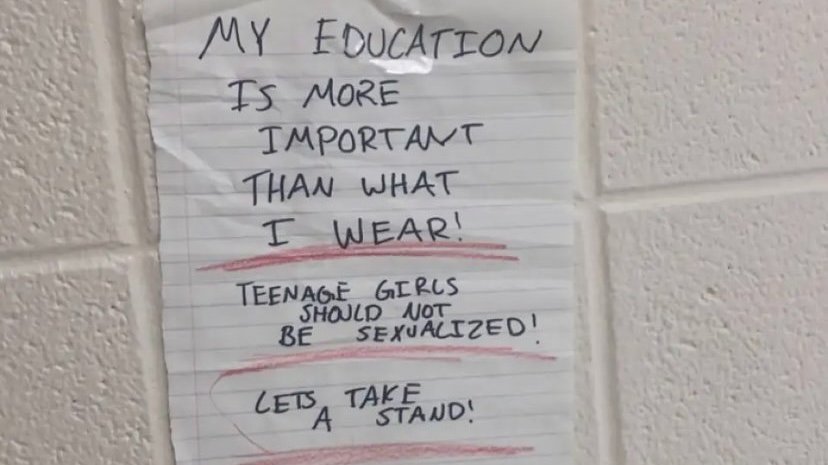 MY EDUCATION
IS MORE
IMPORTANT
THAN WHAT
I WEAR!
TEENAGE GIRLS
SHOULD NOT
BE SEXUALIZED!
LETS TAKE
A STAND!